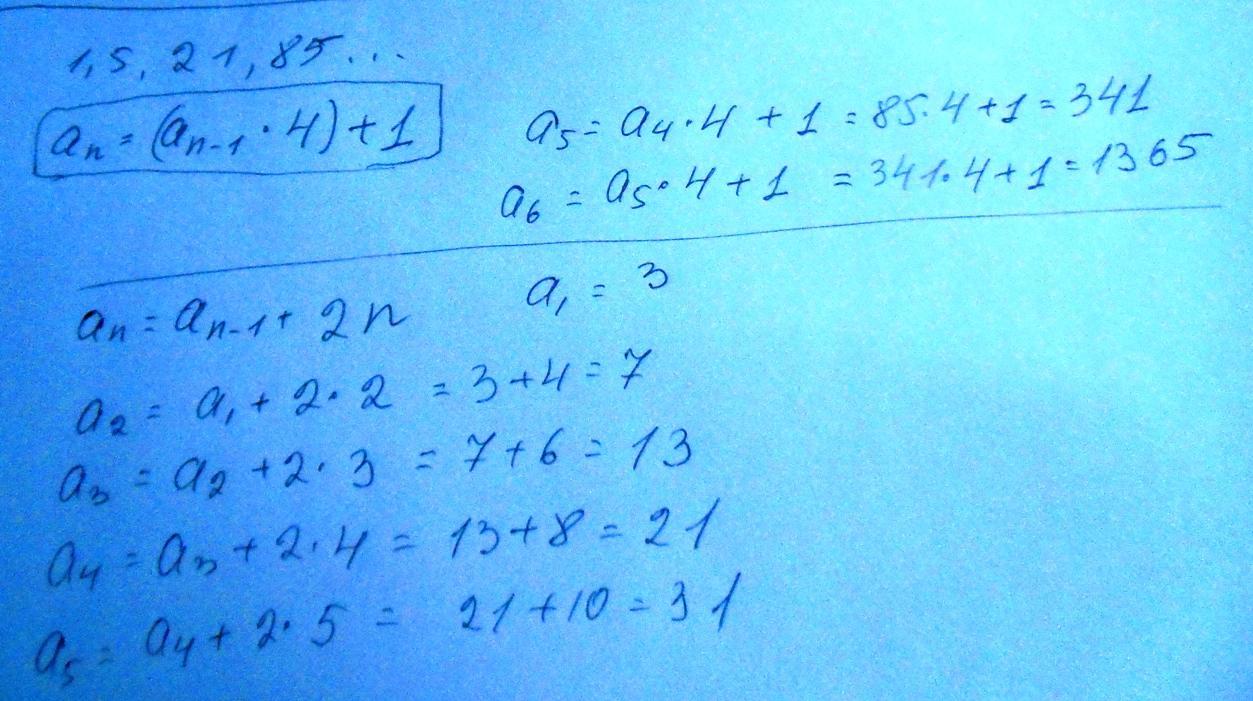 1, 5, 21, 85...
aₙ = (aₙ₋₁ · 4) + 1
a₅ = a₄ · 4 + 1 = 85 · 4 + 1 = 341
a₆ = a₅ · 4 + 1 = 341 · 4 + 1 = 1365
aₙ = aₙ₋₁ + 2n a₁ = 3
a₂ = a₁ + 2 · 2 = 3 + 4 = 7
a₃ = a₂ + 2 · 3 = 7 + 6 = 13
a₄ = a₃ + 2 · 4 = 13 + 8 = 21
a₅ = a₄ + 2 · 5 = 21 + 10 = 31